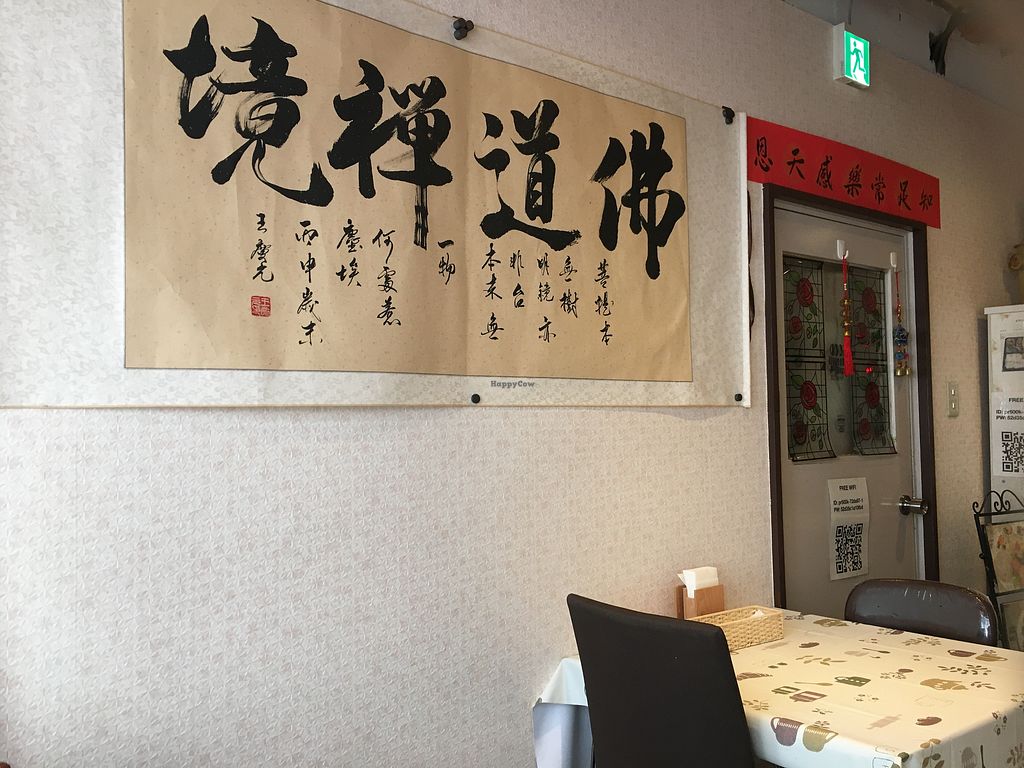 佛道禪境
菩提本
無樹
明鏡亦
非台
本來無
一物
何處惹
塵埃
丙申歲末
知足常樂感天恩
FREE WIFI
FREE
ID:pr500k-
HappyCow